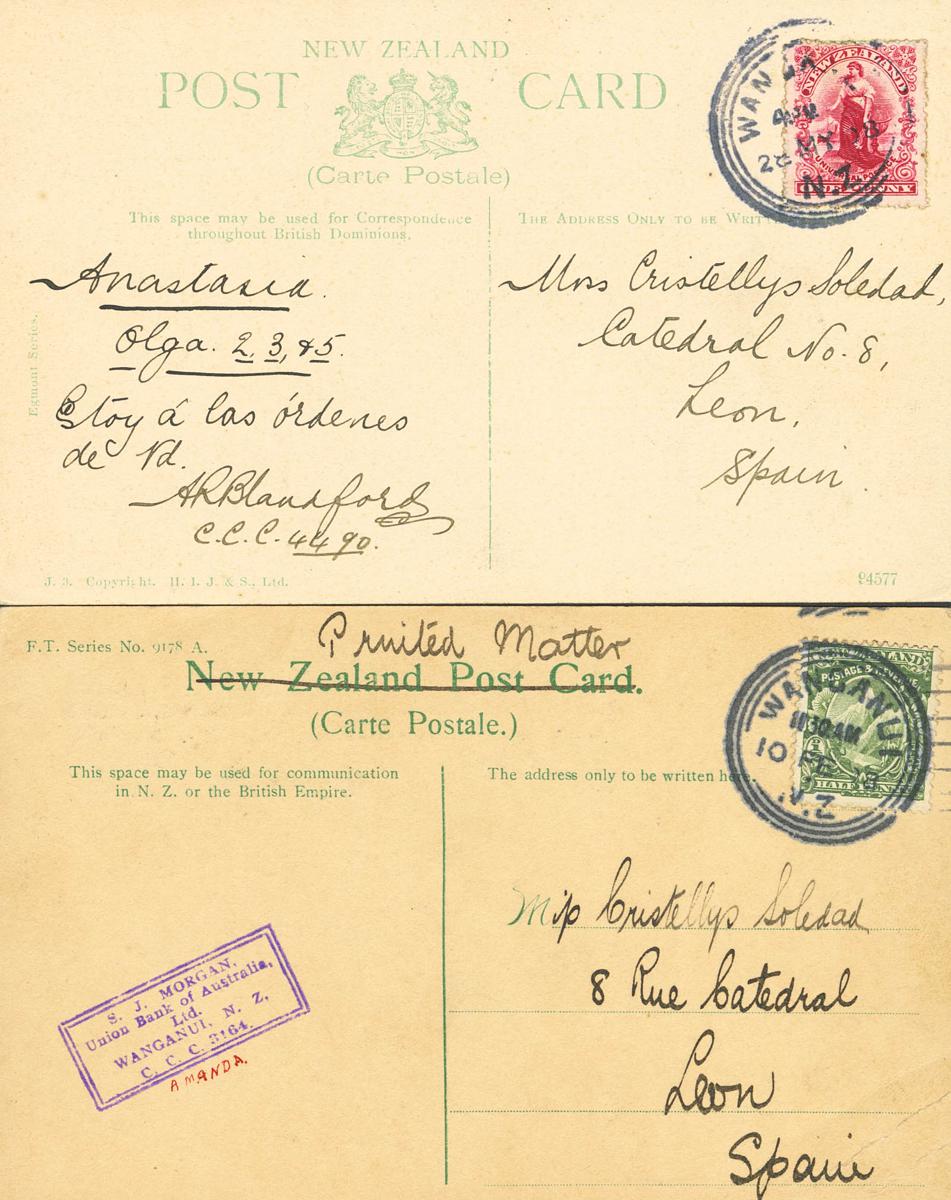 NEW ZEALAND
POST CARD
(Carte Postale)
This space may be used for Correspondence
throughout British Dominions.
THE ADDRESS ONLY TO BE
WAN
4 PM
28 MY 13
N.Z.
NEW ZEALAND
UNIVERSAL
ONE PENNY
Anastasia.
Olga. 2, 3, & 5.
Estoy á las órdenes
de Vd.
ARBlandford
C.C.C. 4490.
Miss Cristellys Soledad,
Catedral No. 8,
Leon,
Spain.
Egmont Series.
J. 3. Copyright. H. I. J. & S., Ltd.
94577
F.T. Series No. 9178 A.
Printed Matter
New Zealand Post Card.
(Carte Postale.)
This space may be used for communication
in N. Z. or the British Empire.
The address only to be written here.
WANGANUI
11 30 AM
10 FE 13
N.Z
ZEALAND
POSTAGE & REVENUE
HALF PENNY
Miss Cristellys Soledad
8 Rue Catedral
Leon
Spain
S. J. MORGAN,
Union Bank of Australia,
Ltd.
WANGANUI, N. Z,
C. C. C. 3164.
AMANDA.